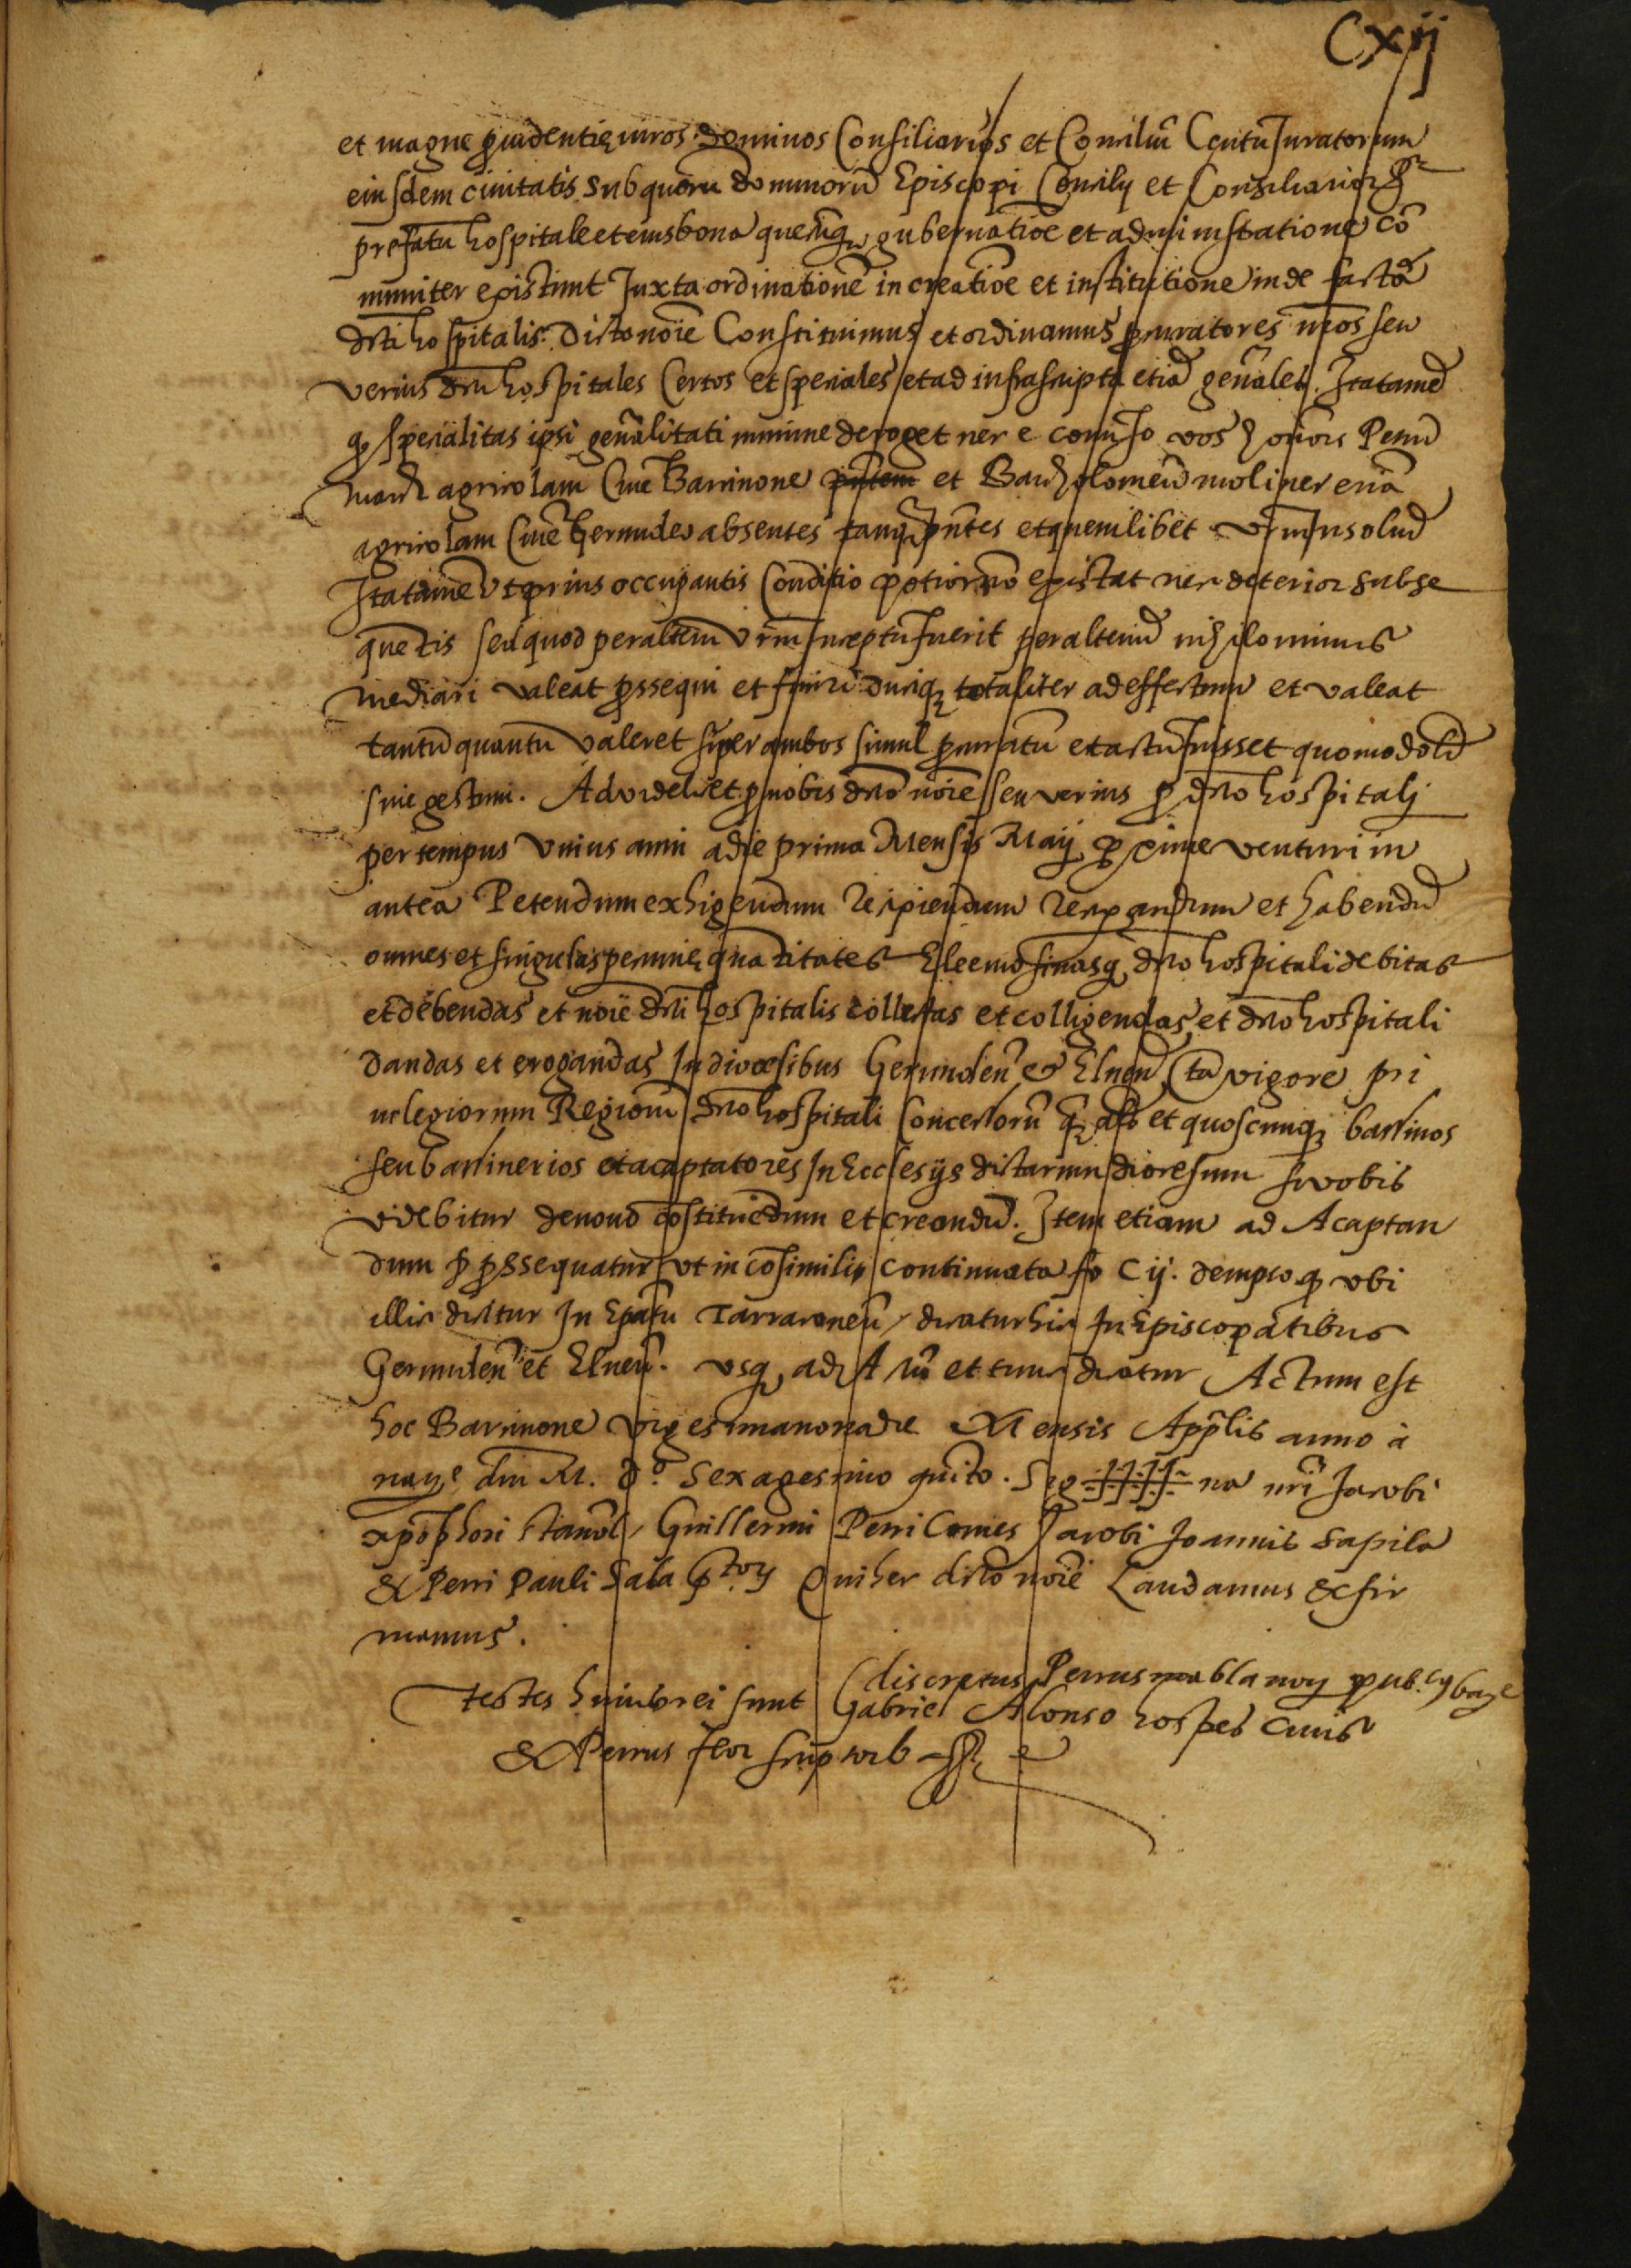 Cxij
et magne ꝓuidentię viros dominos Consiliarios et Consiliũ Centũ Juratorum
eiusdem ciuitatis sub quorũ dominorũ Episcopi Consilij et Consiliarioꝝ
prefatũ hospitale et eius bona queũqꝫ gubernatiõe et administratione cõ
muniter existunt Juxta ordinationẽ in creatiõe et institutione inde facta
dicti hospitalis. Dicto noĩe Constituimus et ordinamus ꝓcuratores nr̃os seu
verius dictũ hospitales Certos et speciales et ad infrascripta etiã gen̄ales. Ita tamẽ
ꝙ specialitas ipsi gen̄alitati minime deroget nec e conuerso vos honor̃ Petrũ
march agricolam Ciuẽ Barcinone et Bartholomeũ moliner etiã
agricolam Ciuẽ Gerunde absentes tanqꝫ pñtes et quemlibet vr̃m Insolud
Ita tamẽ ut primus occupantis Conditio potior nõ existat nec deterior subse
quẽtis sed quod per alterũ vr̃m Inceptũ fuerit per alterũ nihilominus
mediari valeat ꝓssequi et finiri duciqꝫ totaliter ad effectum et valeat
tantũ quantũ valeret si per ambos simul ꝓcuratũ et actũ fuisset quomodolꝫ
siue gestum. Ad videlicet ꝓ nobis dicto noĩe seu verius ꝓ dicto hospitali
per tempus vnius anni a die prima Mensis Maij ꝓxime venturi in
antea Petendum exhigendum Recipiendum Recuperandum et habendũ
omnes et singulas pecunie quãtitates Eleemosinasqꝫ dicto hospitali debitas
et debendas et noĩe dicti hospitalis collectas et colligendas et dicto hospitali
dandas et erogandas In diocesibus Gerunden̄ & Elnen̄ tã vigore pri
uilegiorum Regiorũ dicto hospitali Concessorũ qꝫ als et quoscunqꝫ bassinos
seu bassinerios et acaptatores In Ecclesijs dictarum diocesum si vobis
videbitur denouo cõstituẽdum et creandũ. Item etiam ad Acaptan
dum & ꝓssequatur ut in cõsimili continuata fo Cij. dempto ꝙ ubi
illic dicitur In Epatu Tarraconeñ dicatur hic In Episcopatibus
Gerunden̄ et Elnen̄. vsqꝫ ad Actũ et tunc dicatur Actum est
hoc Barcinone vigesima nona die Mensis Apprilis anno à
natᵉ dñi M. dº. sexagesimo quinto. Sig-####-na nr̃i Jacobi
xpõphori stanyol Guillermi Petri Comes Jacobi Joannis sapila
& Petri Pauli Sala ꝓtorũ Qui hec dicto noĩe Laudamus & fir
mamus.
testes huius rei sunt discretus Petrus mablanoy pub.
Gabriel Alonso hospes Ciuis
& Petrus flor scriptor b